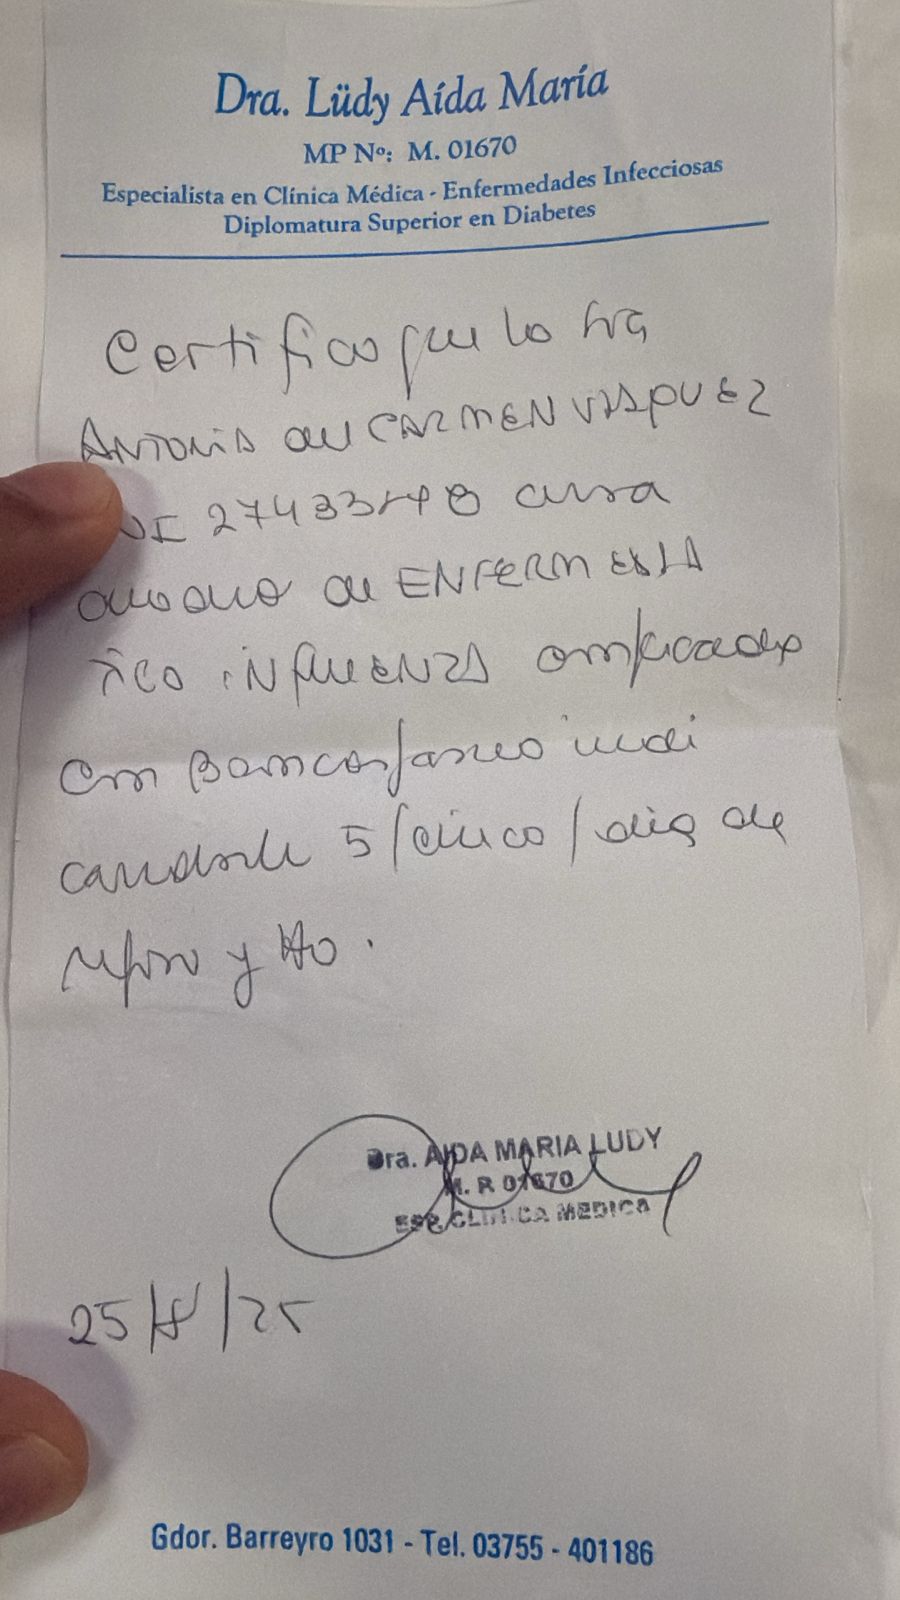 Dra. Lüdy Aída María
MP Nº: M. 01670
Especialista en Clínica Médica - Enfermedades Infecciosas
Diplomatura Superior en Diabetes
Certifico que la Sra
ANTONIA del CARMEN VASQUEZ
cursa
cuadro de ENFERMEDAD
tipo iNfluENZA complicada
con Broncoespasmo indi
candole 5/cinco/días de
reposo y tto.
Dra. AIDA MARIA LUDY
M. P. 01670
ESP. CLINICA MEDICA
25/8/25
Gdor. Barreyro 1031 - Tel. 03755 - 401186